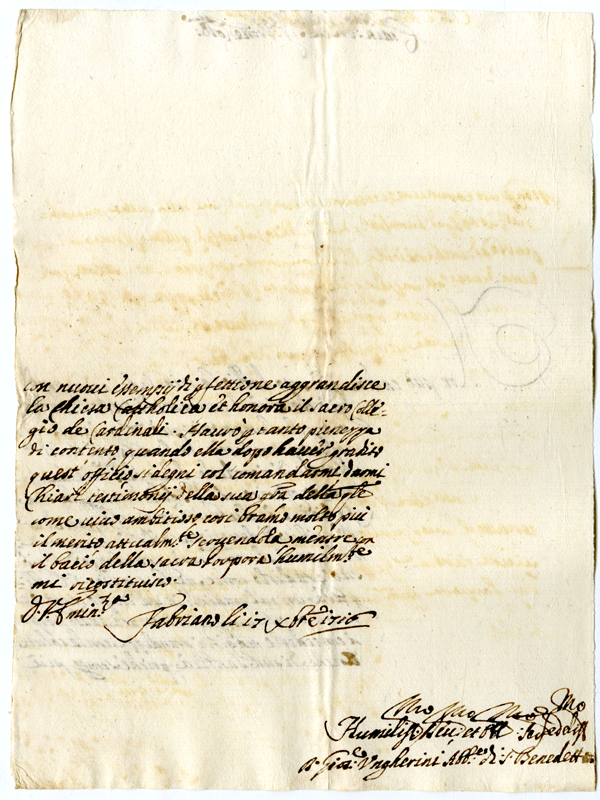 con nuovi esempij di pfettione aggrandisce
la Chiesa Cattholica et honora il sacro Colle-
gio de Cardinali. Havrò ptanto pienezza
di contento quando ella dopo haver gradito
quest' officio si degni col comandarmi darmi
chiari testimonij della sua gra della qle
come vivo ambitioso, cosi bramo molto più
il merito attualmte servendola mentre con
il bacio della sacra Porpora humilmte
mi
D. V. Eminza
Fabriano li 17 Xbre 1716
Humiliss Devo et Obl Se
D. Ungherini Abbe di S. Benedetto